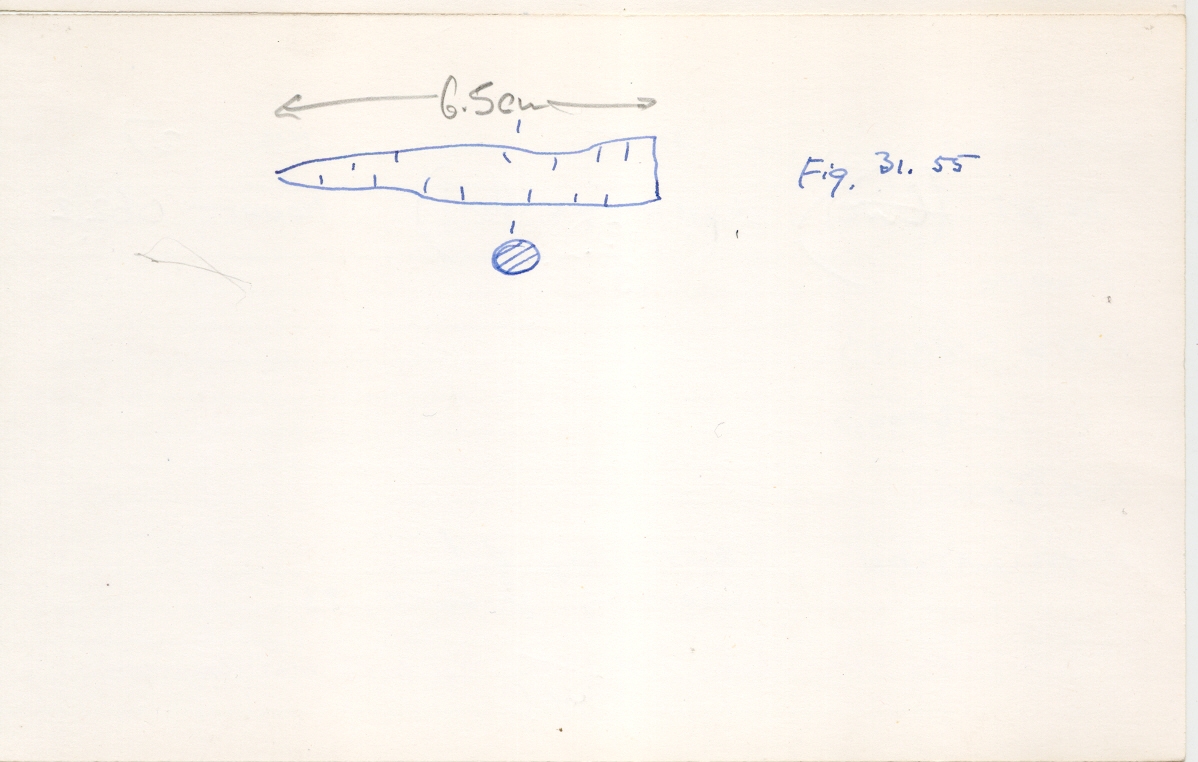 6.5cm
Fig. 31. 55